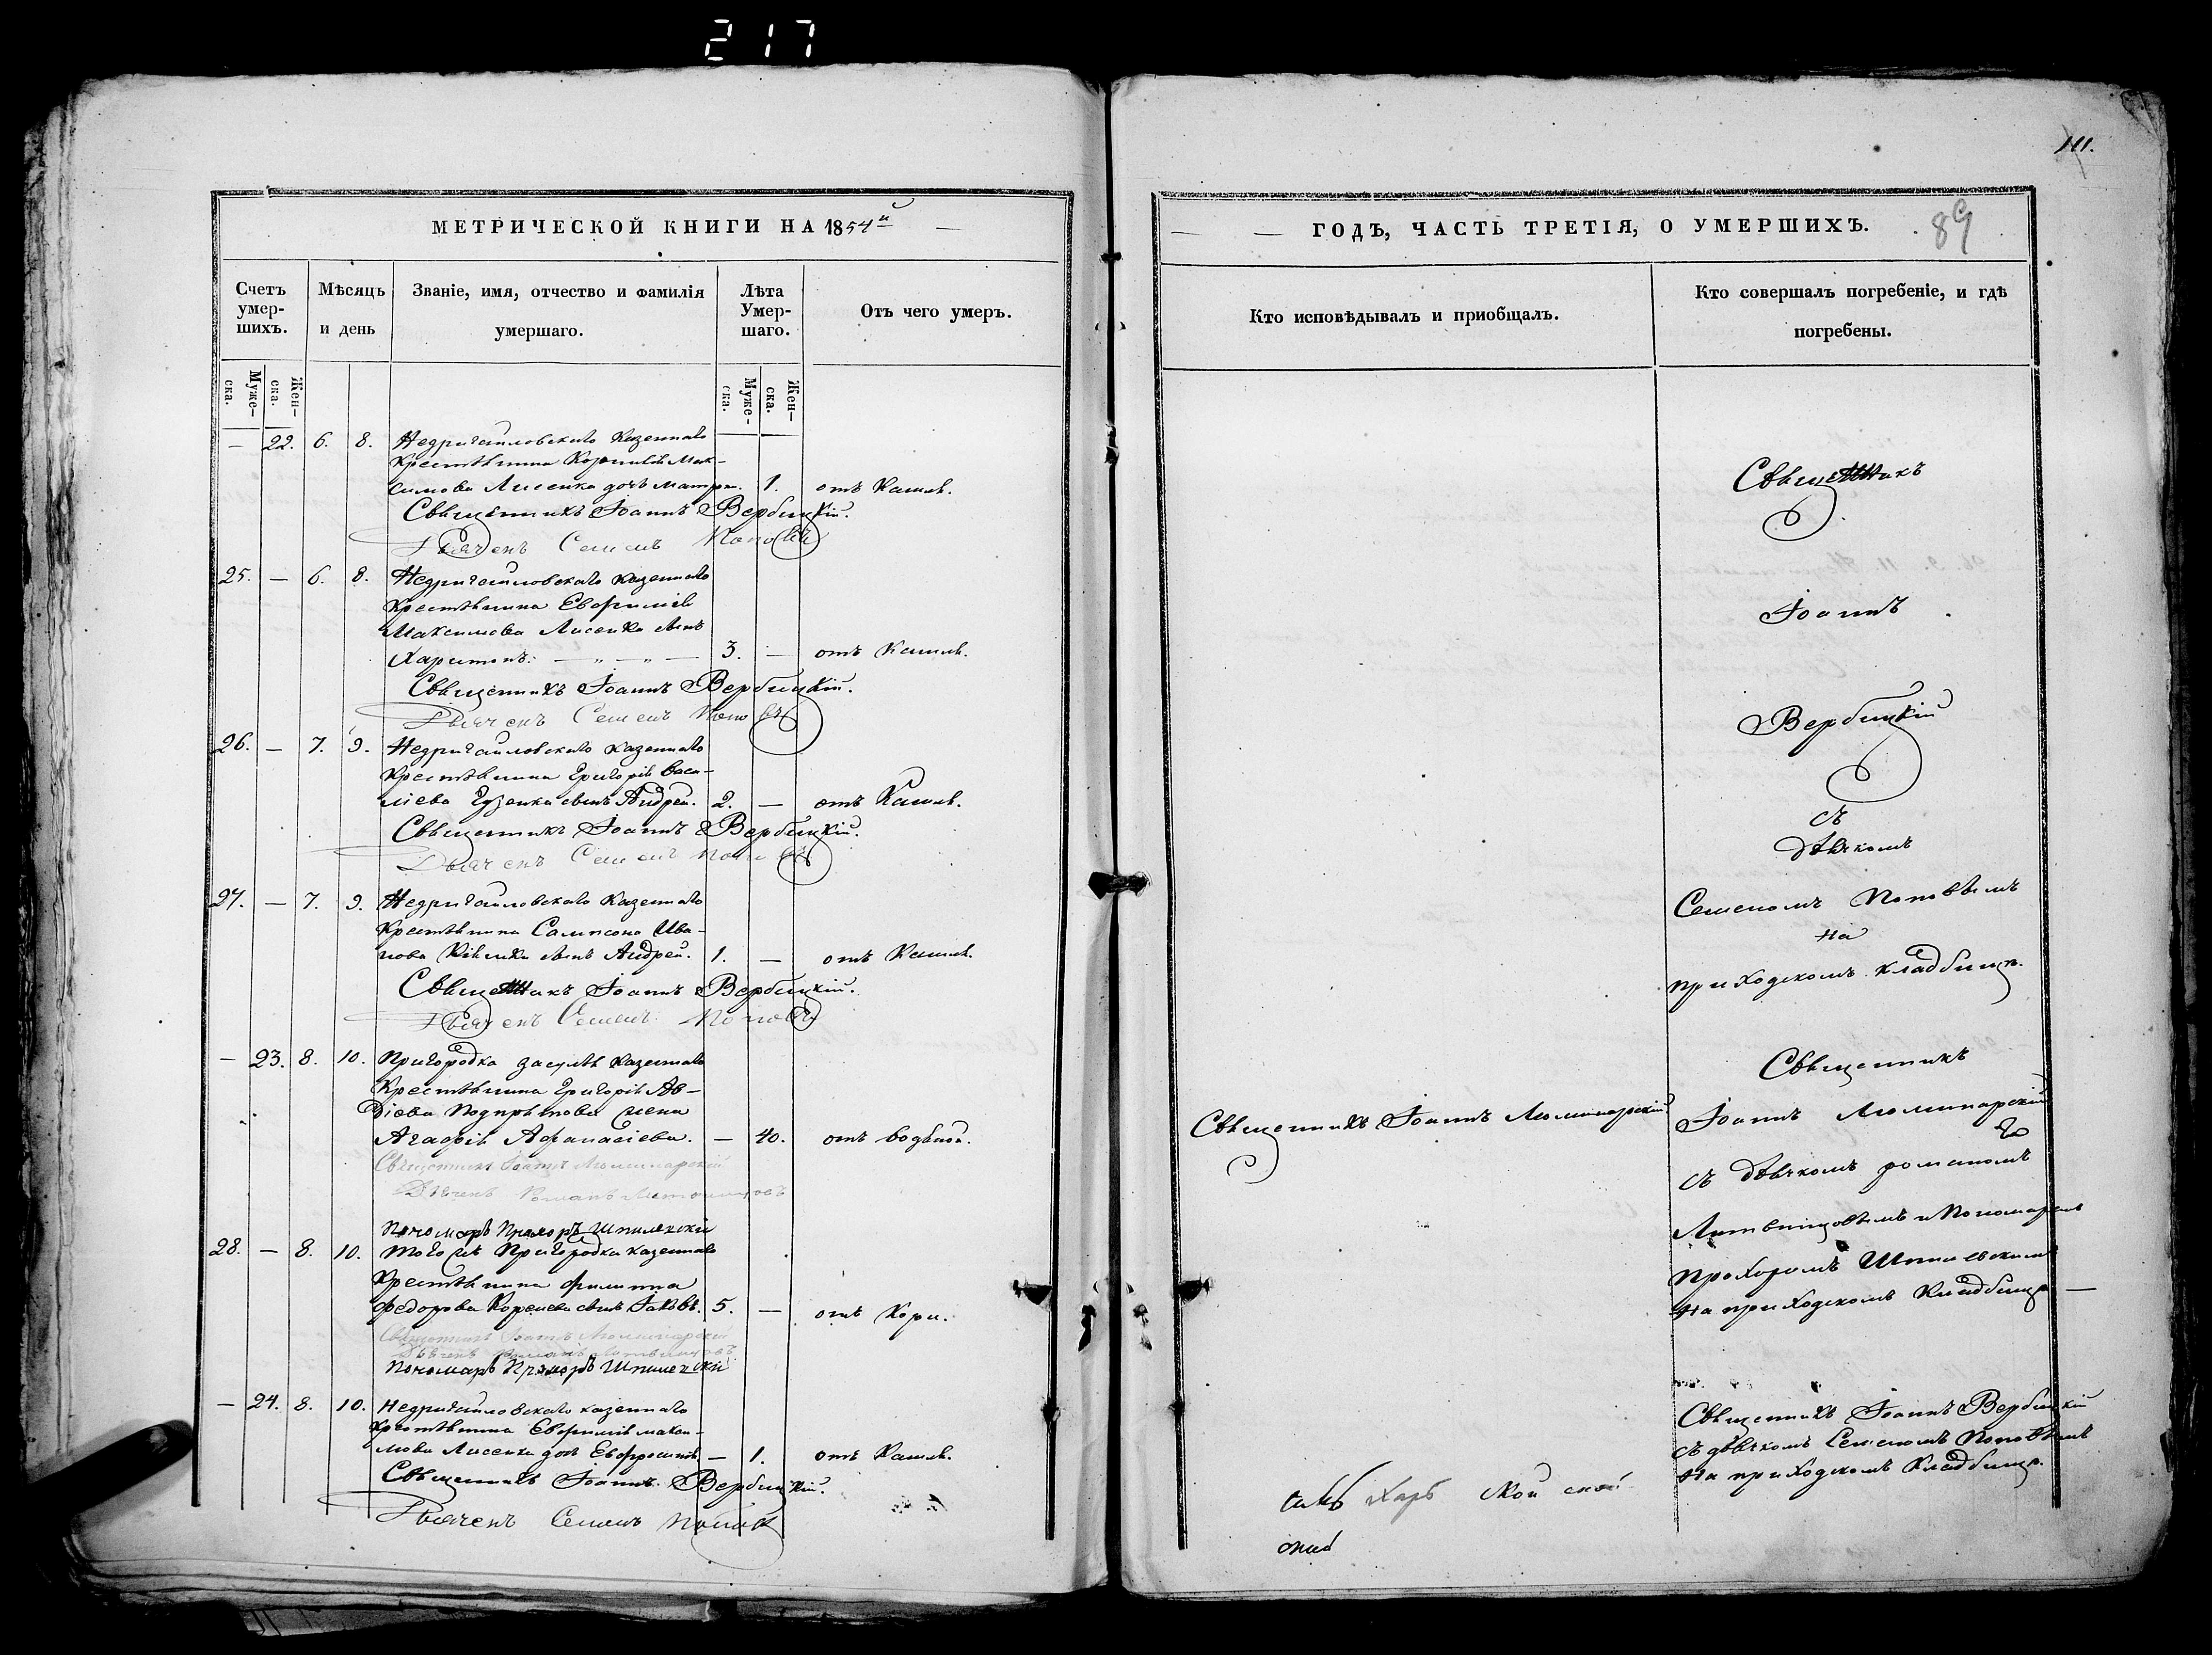 217
111.
МЕТРИЧЕСКОЙ КНИГИ НА 1854й
Счетъ умер-шихъ.
Мѣсяцъ и день
Званіе, имя, отчество и фамилія умершаго.
Лѣта Умер-шаго.
Отъ чего умеръ.
Муже-ска.
Жен-ска.
Муже-ска.
Жен-ска.
— 22. 6. 8. Недригайловскаго Казеннаго
Крестьянина Корнилія Мак-
симова Лисенка дочь Матрон. 1. отъ Кашля.
Священникъ Іоаннъ Вербицкій.
Дьячекъ Семенъ Поповъ
25. — 6. 8. Недригайловскаго Казеннаго
Крестьянина Евфимія
Максимова Лисенка сынъ
Харитонъ. — „ — „ — 3. — отъ Кашля.
Священникъ Іоаннъ Вербицкій.
Дьячекъ Семенъ Поповъ
26. — 7. 9. Недригайловскаго Казеннаго
Крестьянина Григорія Васи-
ліева Гузенка сынъ Андрей. 2. — отъ Кашля.
Священникъ Іоаннъ Вербицкій.
Дьячекъ Семенъ Поповъ
27. — 7. 9. Недригайловскаго Казеннаго
Крестьянина Сампсона Ива-
нова сынъ Андрей. 1. — отъ Кашля.
Священникъ Іоаннъ Вербицкій.
Дьячекъ Семенъ Поповъ
— 23. 8. 10. Пригородка Засулья Казеннаго
Крестьянина Григорія Ав-
діева жена
Агафія Афанасіева. — 40. отъ водяной.
Священникъ Іоаннъ Люминарскій
Дьячекъ Романъ Литвинцовъ
Пономарь Прохоръ Шпилевскій
28. — 8. 10. Того жъ Пригородка казеннаго
Крестьянина Филиппа
Федорова Коренева сынъ Іаковъ. 5. — отъ Кори.
Священникъ Іоаннъ Люминарскій
Дьячекъ Романъ Литвинцовъ
Пономарь Прохоръ Шпилевскій
— 24. 8. 10. Недригайловскаго казеннаго
Крестьянина Евфимія Макси-
мова Лисенка дочь Евфросинія — 1. отъ Кашля.
Священникъ Іоаннъ Вербицкій.
Дьячекъ Семенъ Поповъ
ГОДЪ, ЧАСТЬ ТРЕТІЯ, О УМЕРШИХЪ. 89
Кто исповѣдывалъ и пріобщалъ.
Кто совершалъ погребеніе, и гдѣ погребены.
Священникъ
Іоаннъ
Вербицкій
съ
дьячкомъ
Семеномъ Поповымъ
на
приходскомъ кладбищѣ.
Священникъ Іоаннъ Люминарскій
Священникъ
Іоаннъ Люминарскій
съ дьячкомъ Романомъ
Литвинцовымъ и Пономаремъ
Прохоромъ Шпилевскимъ
на приходскомъ Кладбищѣ —
Священникъ Іоаннъ Вербицкій
съ дьячкомъ Семеномъ Поповымъ
на приходскомъ Кладбищѣ.